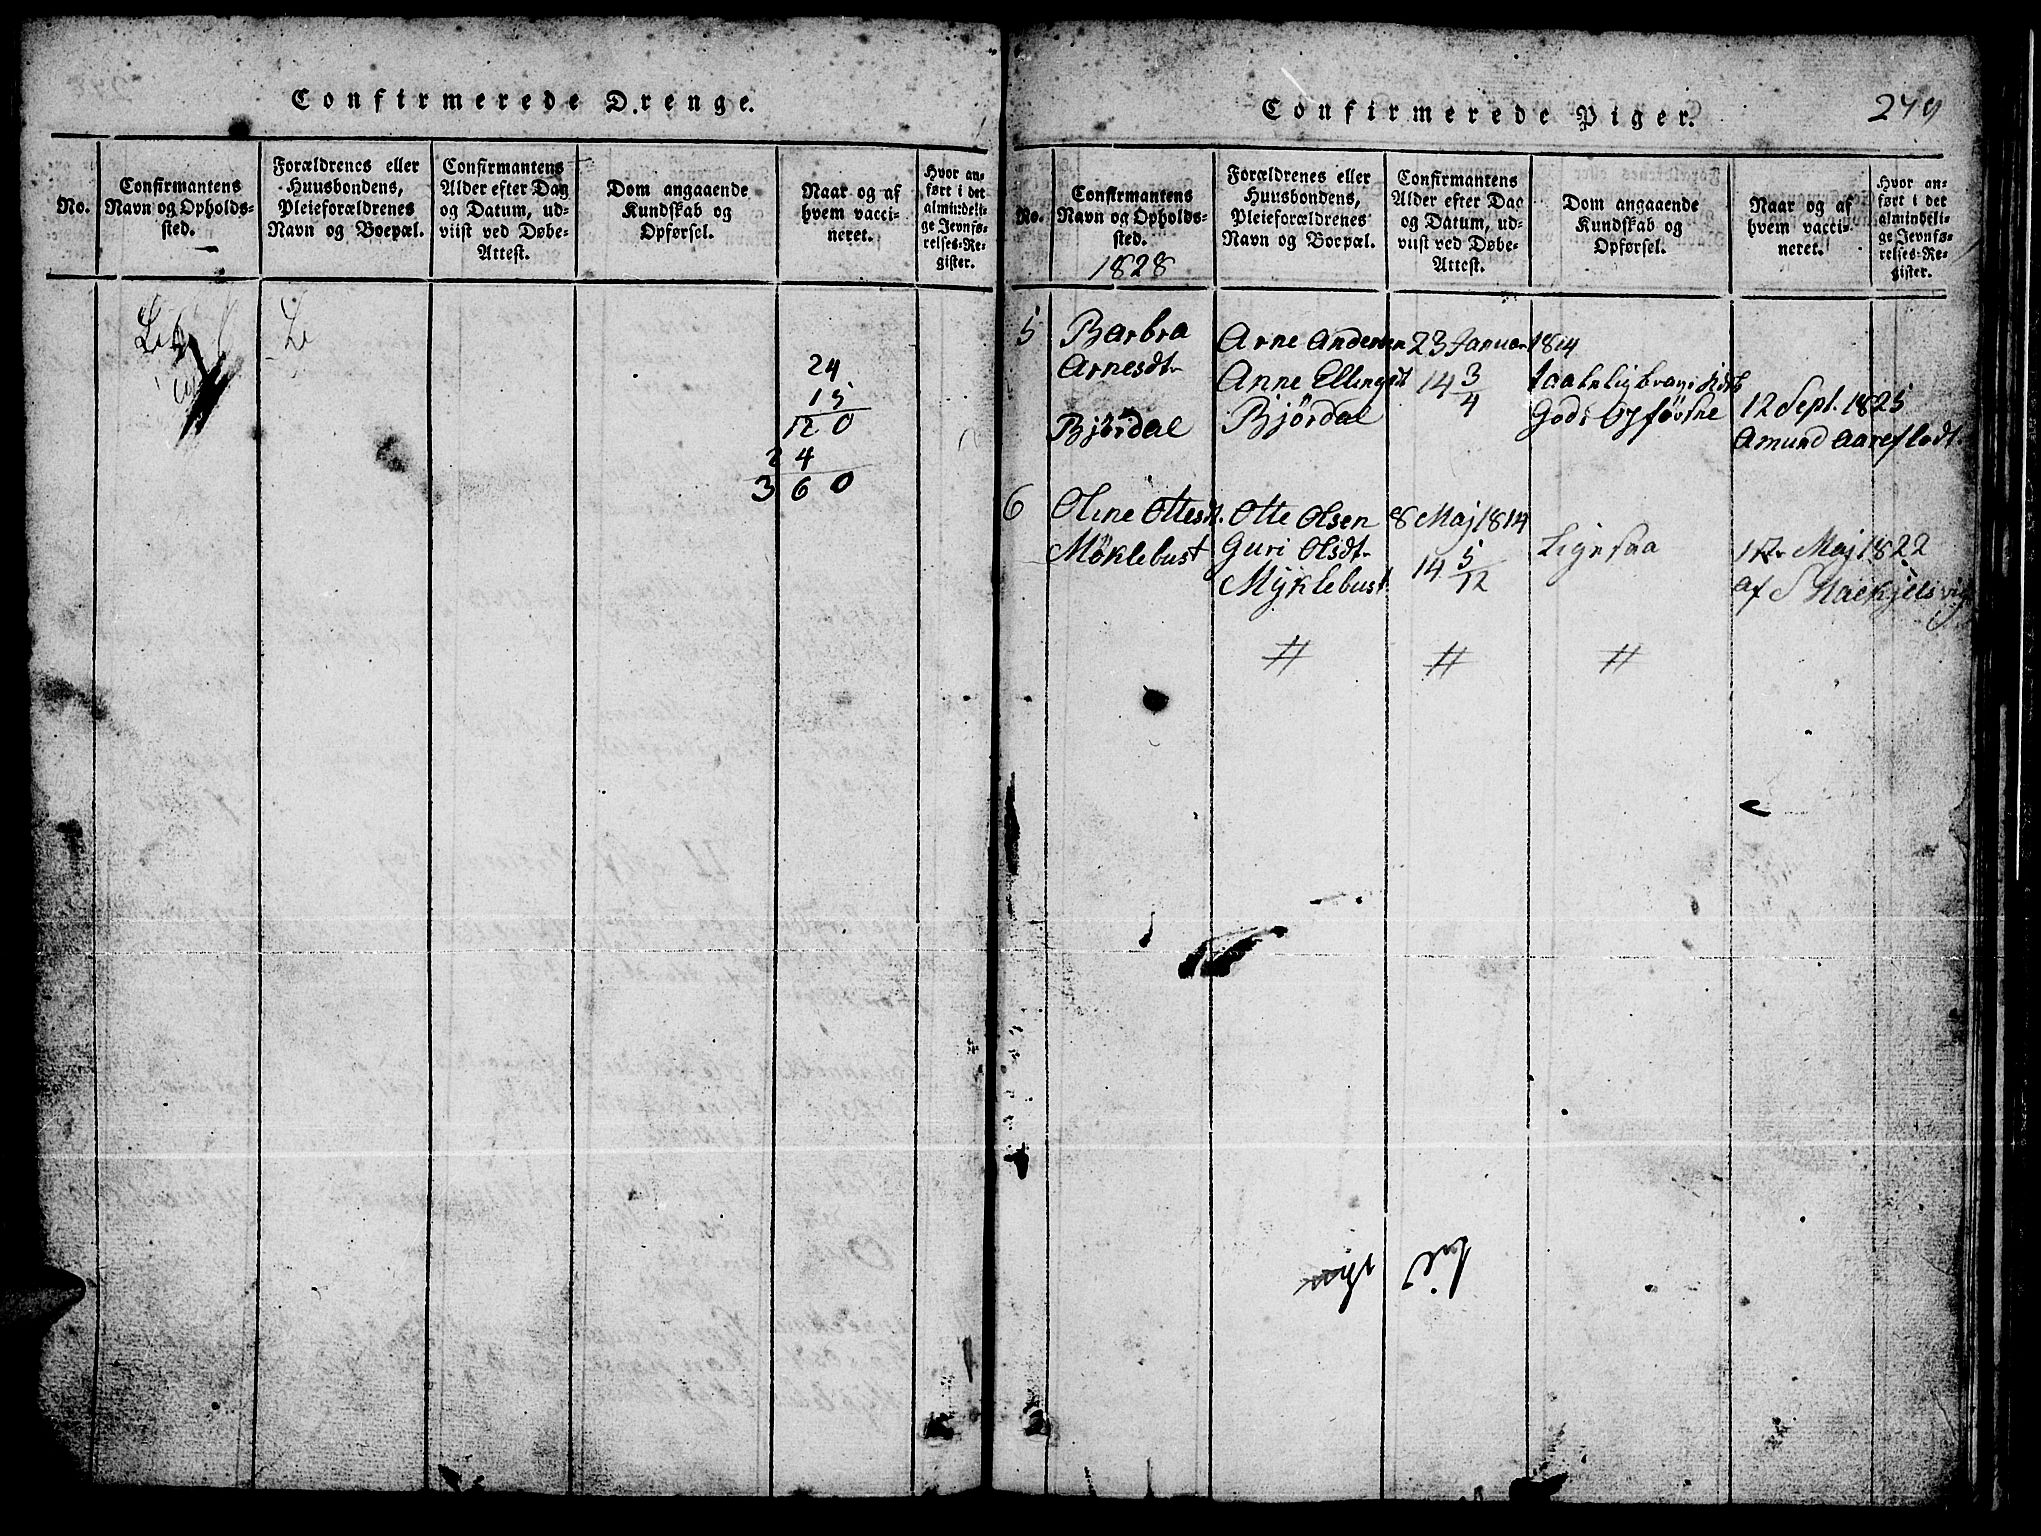 Confirmerede Drenge.
No.
Confirmantens
Navn og Opholds-
sted.
Forældrenes eller
Huusbondens,
Pleieforældrenes
Navn og Boepæl.
Confirmantens
Alder efter Dag
og Datum, ud-
viist ved Døbe-
Attest.
Dom angaaende
Kundskab og
Opførsel.
Naar og af
hvem vacci-
neret.
Hvor an-
ført i det
almindeli-
ge Jevnfø-
relses-Re-
gister.
24
15
120
24
360
Confirmerede Piger.
279
No.
Confirmantens
Navn og Opholds-
sted.
1828
Forældrenes eller
Huusbondens,
Pleieforældrenes
Navn og Boepæl.
Confirmantens
Alder efter Dag
og Datum, ud-
viist ved Døbe-
Attest.
Dom angaaende
Kundskab og
Opførsel.
Naar og af
hvem vacci-
neret.
Hvor an-
ført i det
almindeli-
ge Jevnfø-
relses-Re-
gister.
5
Barbra
Arnesdt
Bjørdal
Arne Andersen
Anne Ellingsdt
Bjørdal
23 Januar 1814
14 3/4
God
12 Sept. 1825
Amund Aareflodt
6
Oline Ottesdt.
Möklebust
Otte Olsen
Guri Olsdt
Myklebust
8 Maj 1814
14 5/12
Ligesaa
Maj 1822
af